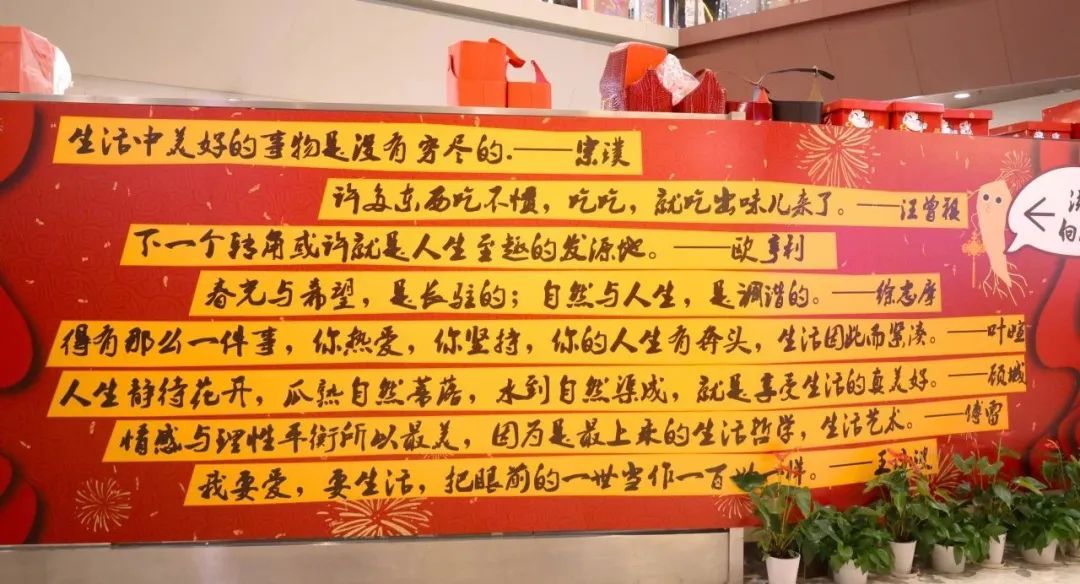 生活中美好的事物是没有穷尽的.——宗璞
许多东西吃不惯，吃吃，就吃出味儿来了。——汪曾祺
下一个转角或许就是人生至趣的发源地。——欧亨利
春光与希望，是长驻的；自然与人生，是调谐的。——徐志摩
得有那么一件事，你热爱，你坚持，你的人生有奔头，生活因此而紧凑。——叶暄
人生静待花开，瓜熟自然蒂落，水到自然渠成，就是享受生活的真美好。——顾城
情感与理性平衡所以最美，因为是最上来的生活哲学，生活艺术。——傅雷
我要爱，要生活，把眼前的一世当作一百世一样。——王